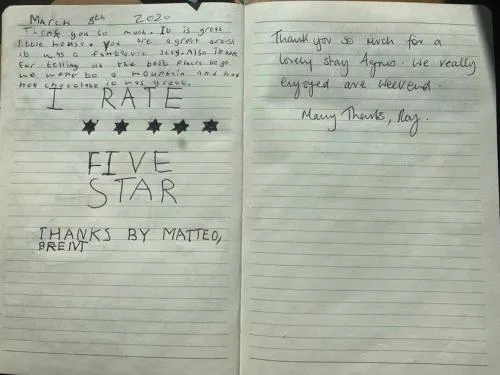 March 8th 2020
Thank you so much. It is great
little house. You are a great artist
it was a fantastic stay. Also thank
for telling us the best places to go
we went to a mountain and had
hot chocolate it was great.
I RATE
★ ★ ★ ★ ★
FIVE
STAR
THANKS BY MATTEO,
BRENT
Thank you so much for a
lovely stay Agnus. We really
enjoyed are weekend.
Many Thanks, Ray.